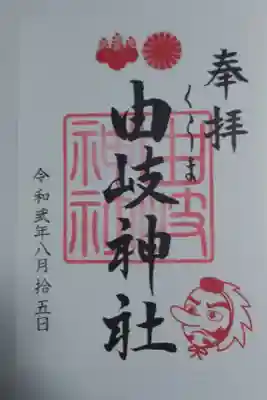 奉拝
くらま
由岐神社
由岐
神社
令和弐年八月拾五日